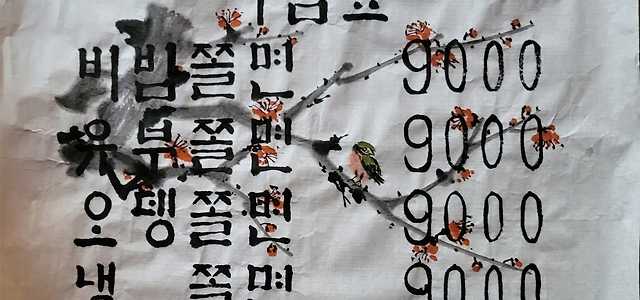 비빔쫄면 9000
유부쫄면 9000
오뎅쫄면 9000
냉 쫄면 9000